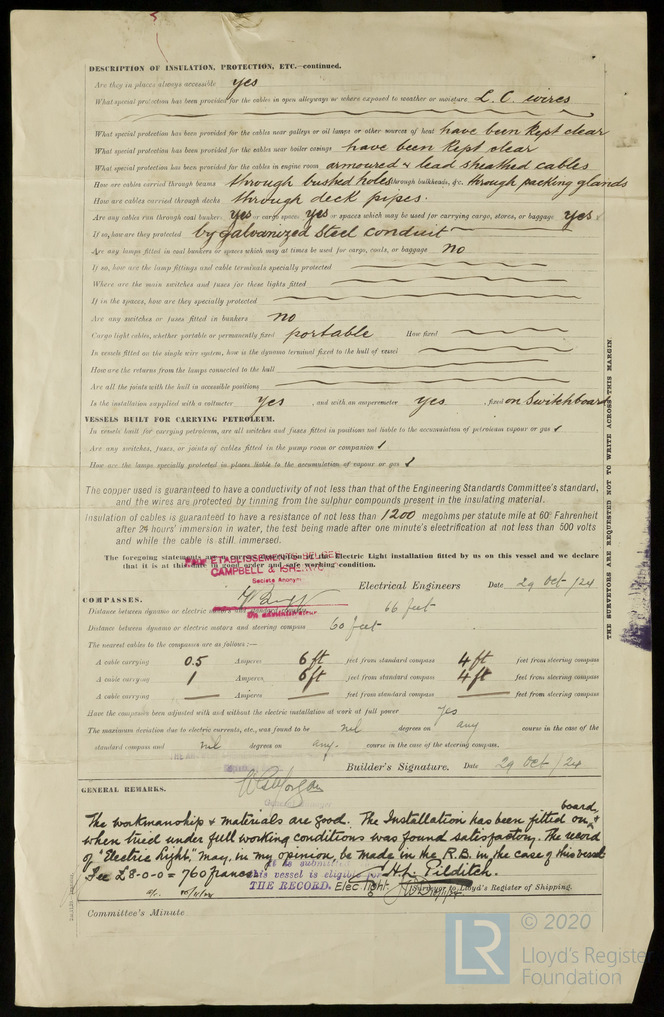 DESCRIPTION OF INSULATION, PROTECTION, ETC.—continued.
Are they in places always accessible yes
What special protection has been provided for the cables in open alleyways or where exposed to weather or moisture L. C. wires
What special protection has been provided for the cables near galleys or oil lamps or other sources of heat have been kept clear
What special protection has been provided for the cables near boiler casings have been kept clear
What special protection has been provided for the cables in engine room armoured & lead sheathed cables
How are cables carried through beams through bushed holes through bulkheads, &c. through packing glands
How are cables carried through decks through deck pipes.
Are any cables run through coal bunkers yes or cargo spaces yes or spaces which may be used for carrying cargo, stores, or baggage yes
If so, how are they protected by galvanized steel conduit
Are any lamps fitted in coal bunkers or spaces which may at times be used for cargo, coals, or baggage no
If so, how are the lamp fittings and cable terminals specially protected
Where are the main switches and fuses for these lights fitted
If in the spaces, how are they specially protected
Are any switches or fuses fitted in bunkers no
Cargo light cables, whether portable or permanently fixed portable How fixed
In vessels fitted on the single wire system, how is the dynamo terminal fixed to the hull of vessel
How are the returns from the lamps connected to the hull
Are all the joints with the hull in accessible positions
Is the installation supplied with a voltmeter yes , and with an amperemeter yes , fixed on Switchboard
VESSELS BUILT FOR CARRYING PETROLEUM.
In vessels built for carrying petroleum, are all switches and fuses fitted in positions not liable to the accumulation of petroleum vapour or gas ✓
Are any switches, fuses, or joints of cables fitted in the pump room or companion ✓
How are the lamps specially protected in places liable to the accumulation of vapour or gas ✓
The copper used is guaranteed to have a conductivity of not less than that of the Engineering Standards Committee's standard,
and the wires are protected by tinning from the sulphur compounds present in the insulating material.
Insulation of cables is guaranteed to have a resistance of not less than 1200 megohms per statute mile at 60° Fahrenheit
after 24 hours' immersion in water, the test being made after one minute's electrification at not less than 500 volts
and while the cable is still immersed.
The foregoing statements are a correct description of the Electric Light installation fitted by us on this vessel and we declare
that it is at this date in good order and safe working condition.
ETABLISSEMENTS BELGES
CAMPBELL & ISHERWOOD
Société Anonyme
Electrical Engineers Date 29 Oct /24
Un administrateur.
COMPASSES.
Distance between dynamo or electric motors and standard compass 66 feet
Distance between dynamo or electric motors and steering compass 60 feet
The nearest cables to the compasses are as follows:—
A cable carrying 0.5 Amperes 6 ft feet from standard compass 4 ft feet from steering compass
A cable carrying 1 Amperes 6 ft feet from standard compass 4 ft feet from steering compass
A cable carrying — Amperes — feet from standard compass — feet from steering compass
Have the compasses been adjusted with and without the electric installation at work at full power yes
The maximum deviation due to electric currents, etc., was found to be nil degrees on any course in the case of the
standard compass and nil degrees on any. course in the case of the steering compass.
Builder's Signature. Date 29 Oct /24
GENERAL REMARKS.
The workmanship & materials are good. The Installation has been fitted on board, &
when tried under full working conditions was found satisfactory. The record
of "Electric light," may, in my opinion, be made in the R.B. in the case of this vessel
Fee £8-0-0 = 760 francs
It is submitted
this vessel is eligible for
THE RECORD. Elec. light.
H. L. Pilditch.
Surveyor to Lloyd's Register of Shipping.
Committee's Minute
THE SURVEYORS ARE REQUESTED NOT TO WRITE ACROSS THIS MARGIN.
LR
© 2020
Lloyd's Register
Foundation